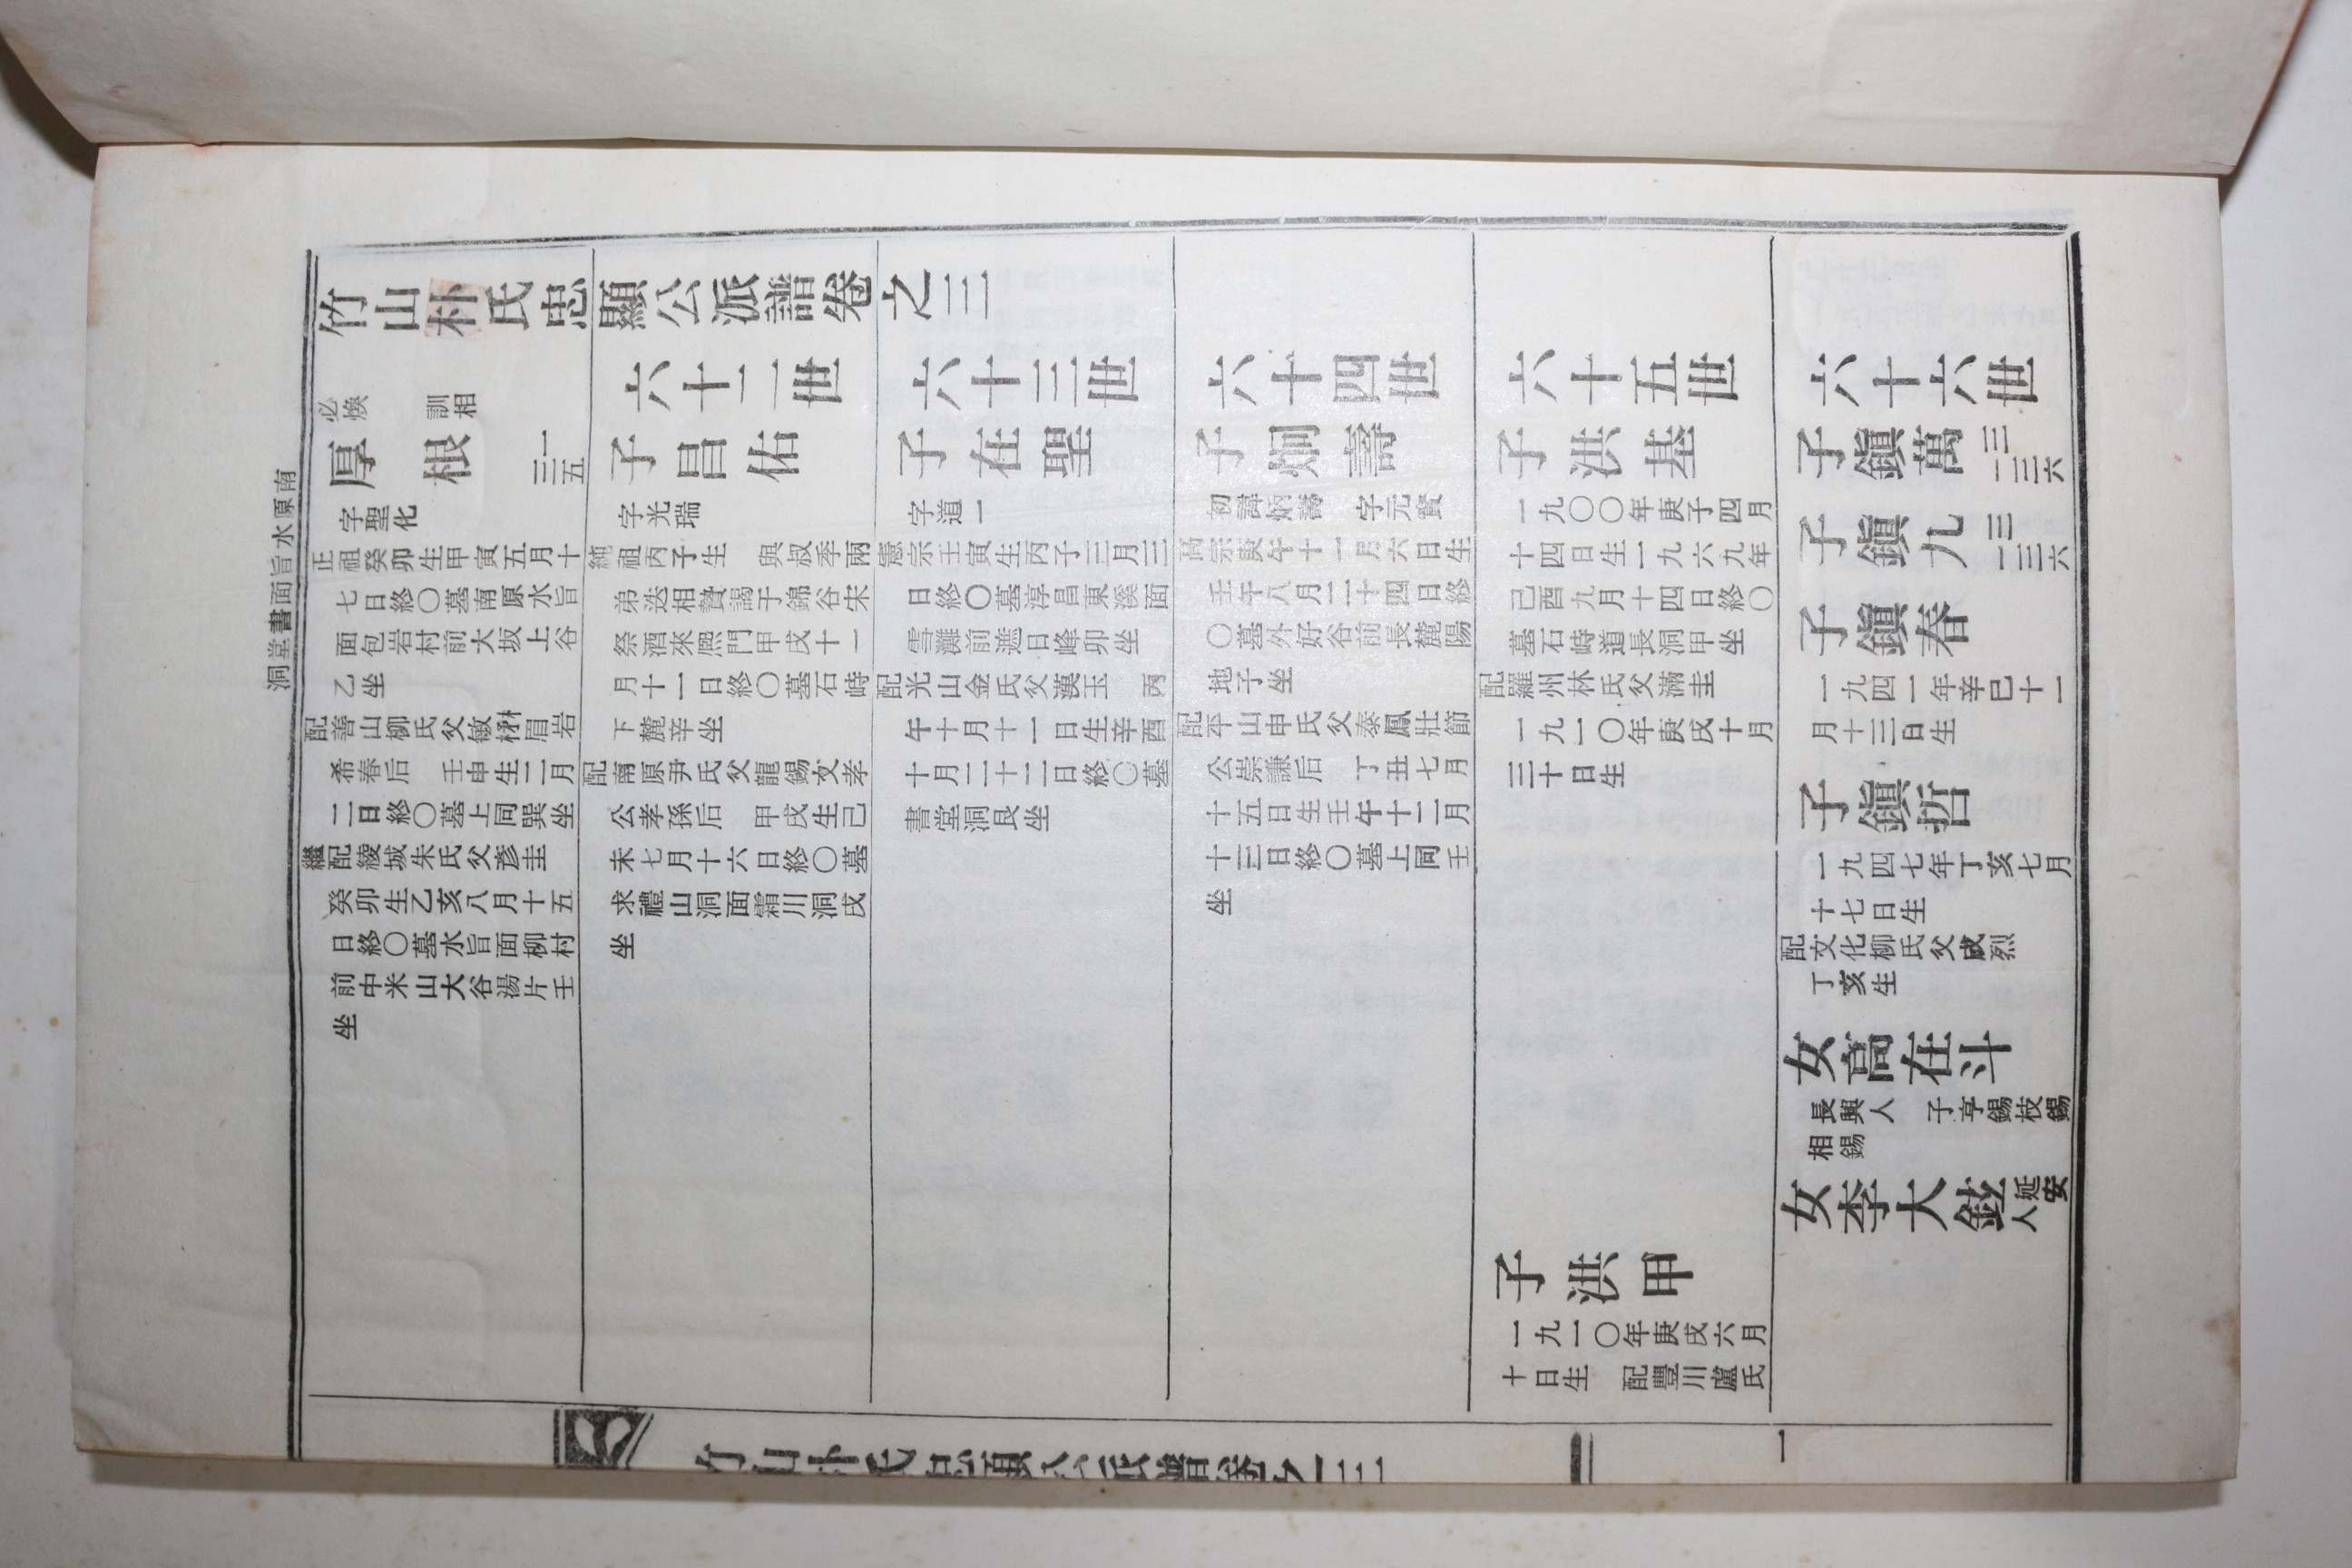 南原水旨面書堂洞
竹山朴氏忠顯公派譜卷之三
必煥　訓相
厚根　一三五
字聖化
正祖癸卯生甲寅五月十
七日終〇墓南原水旨
面包岩村前大坂上谷
乙坐
配善山柳氏父敏楙眉岩
希春后　壬申生二月
二日終〇墓上同巽坐
繼配綾城朱氏父彥圭
癸卯生乙亥八月十五
日終〇墓水旨面柳村
前中米山大谷湯片壬
坐
六十二世
子昌佑
字光瑞
純祖丙子生　與叔季兩
弟迭相贄謁于錦谷宋
祭酒來熙門甲戌十一
月十一日終〇墓石峙
下麓辛坐
配南原尹氏父龍錫文孝
公孝孫后　甲戌生己
未七月十六日終〇墓
求禮山洞面霜川洞戌
坐
六十三世
子在聖
字道一
憲宗壬寅生丙子三月三
日終〇墓淳昌東溪面
雪灘前遮日峰卯坐
配光山金氏父漢玉　丙
午十月十一日生辛酉
十月二十二日終〇墓
書堂洞艮坐
六十四世
子炯壽
初諱炳壽　字元賓
高宗庚午十一月六日生
壬午八月二十四日終
〇墓外好谷前長麓陽
地子坐
配平山申氏父泰鳳壯節
公崇謙后　丁丑七月
十五日生壬午十二月
十三日終〇墓上同壬
坐
六十五世
子洪基
一九〇〇年庚子四月
十四日生一九六九年
己酉九月十四日終〇
墓石峙道長洞甲坐
配羅州林氏父滿圭
一九一〇年庚戌十月
三十日生
子洪甲
一九一〇年庚戌六月
十日生　配豐川盧氏
六十六世
子鎭萬　三一三六
子鎭九　三一三六
子鎭春
一九四一年辛巳十一
月十三日生
子鎭哲
一九四七年丁亥七月
十七日生
配文化柳氏父成烈
丁亥生
女高在斗
長興人　子亨錫枝錫
相錫
女李大鉉　延安人
竹山朴氏忠顯公派譜卷之三
一